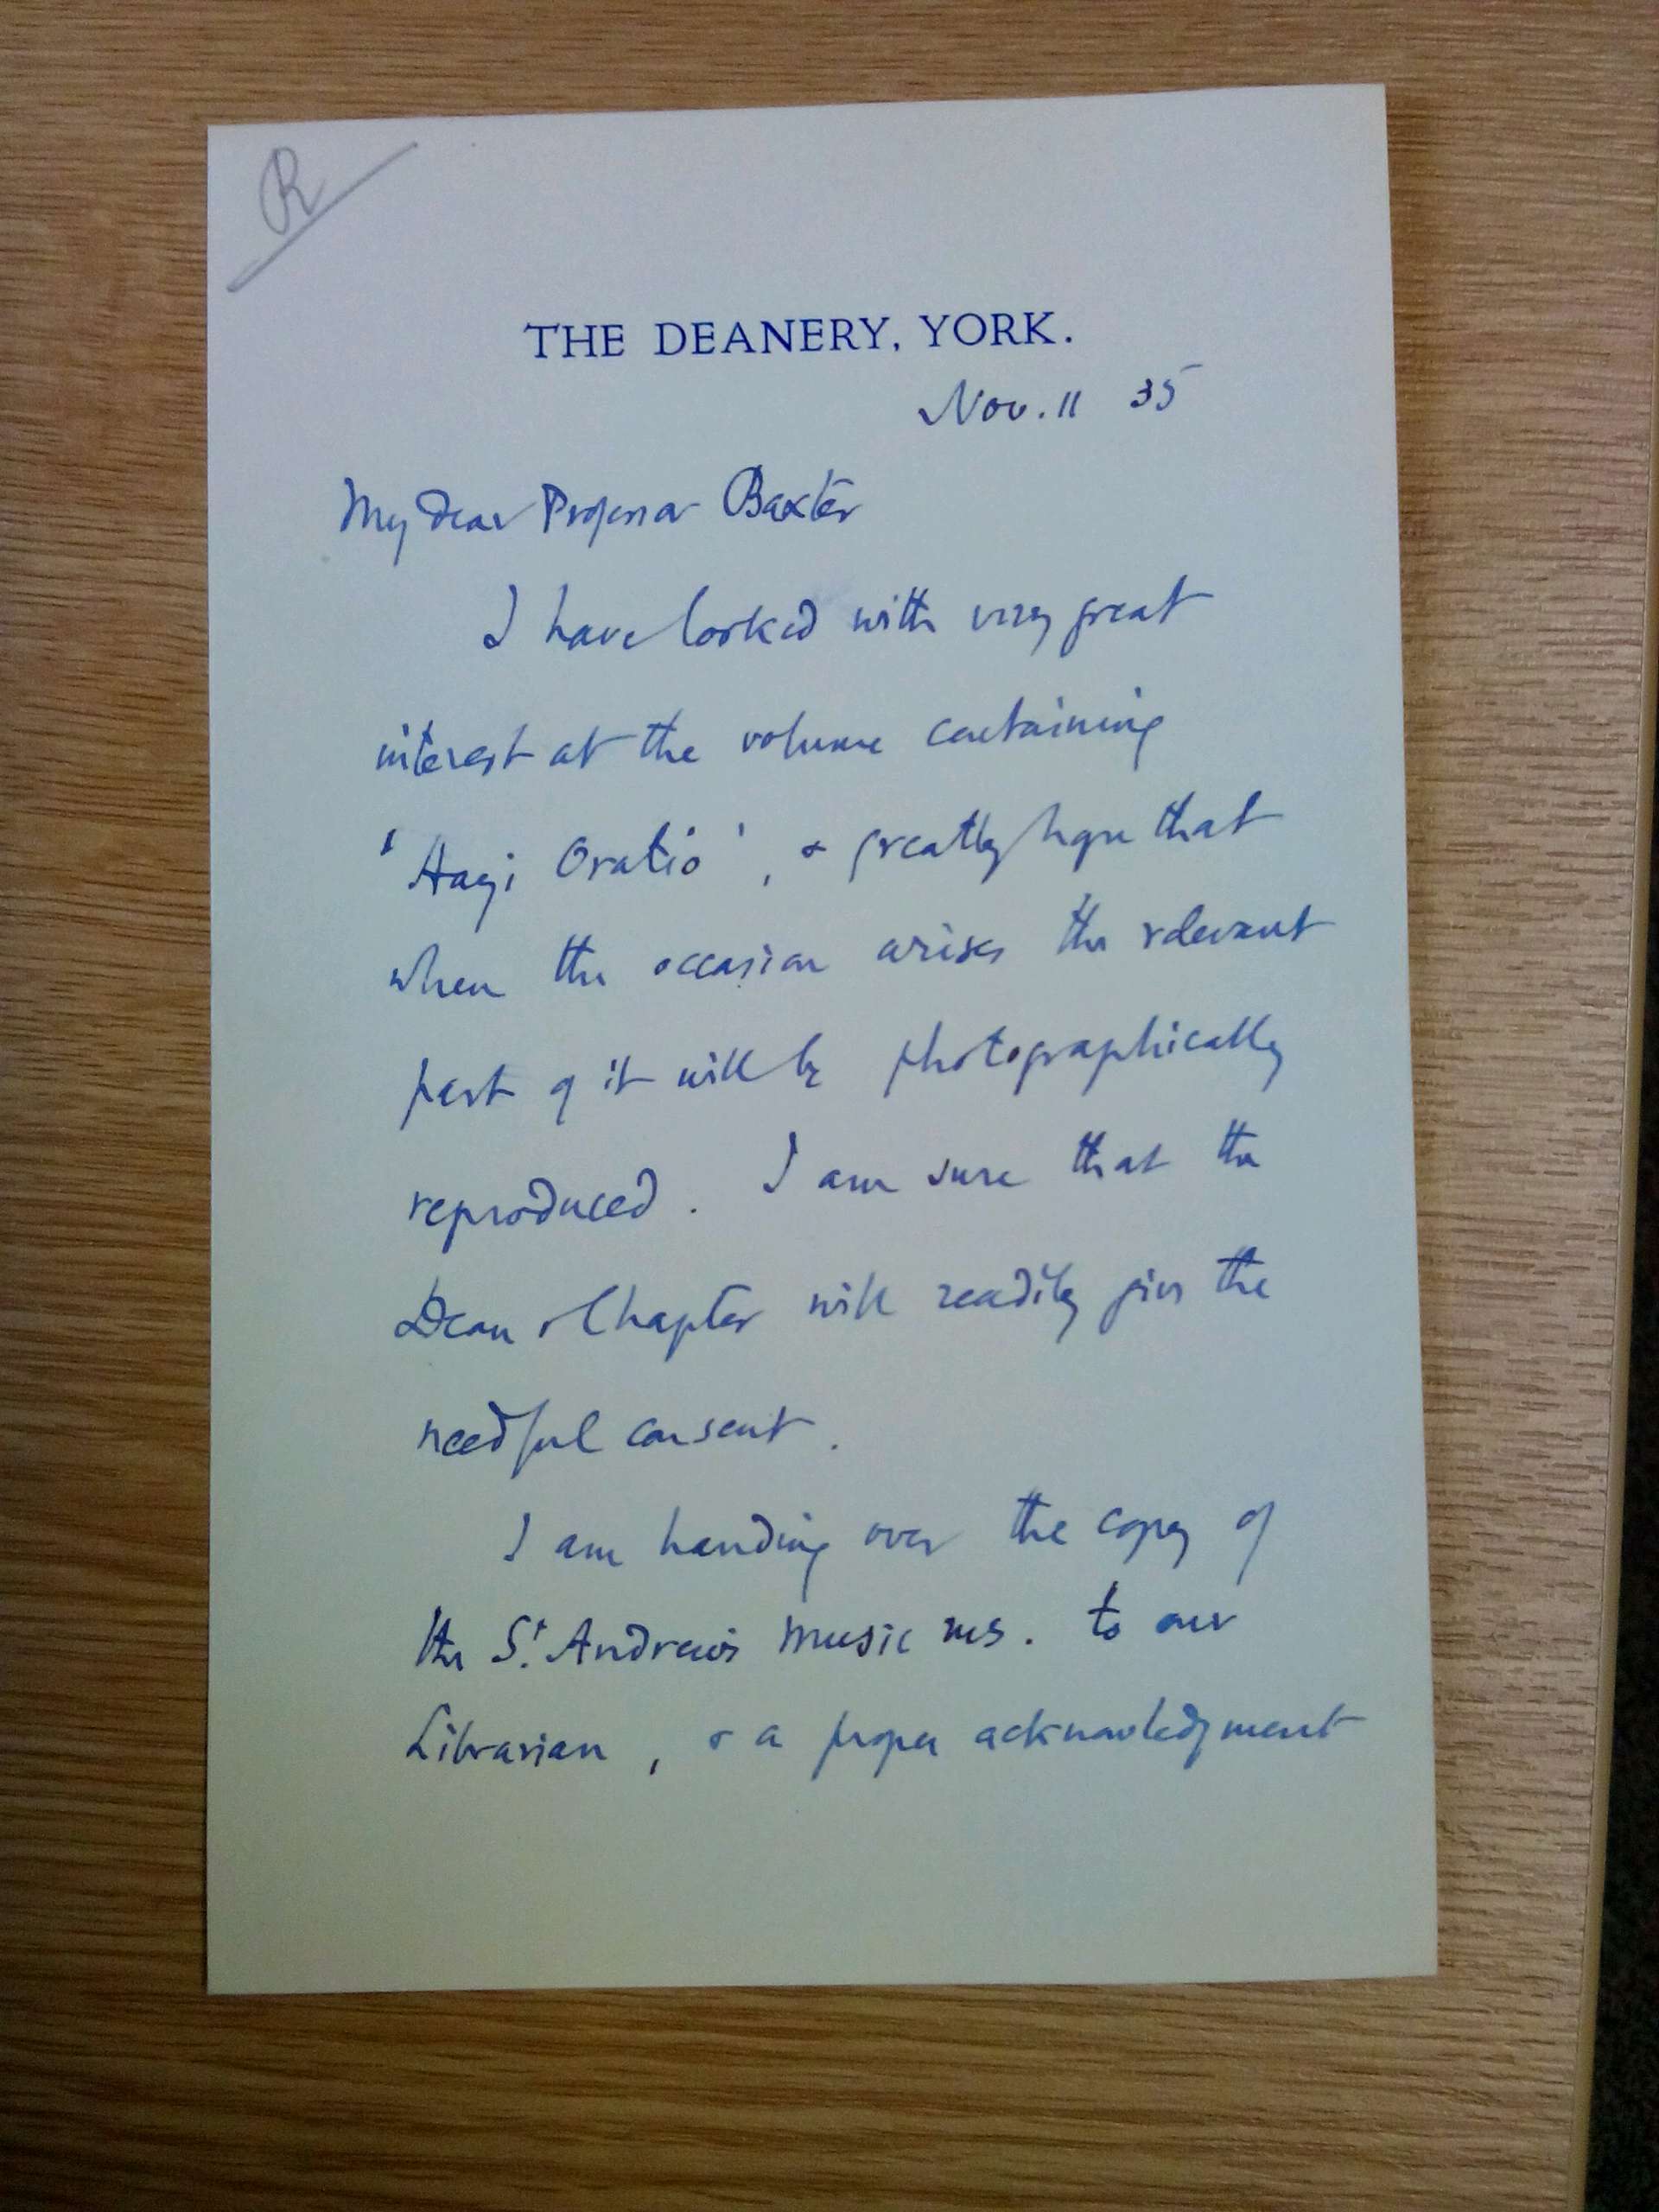 R
THE DEANERY, YORK.
Nov. 11 35
My Dear Professor Baxter
I have looked with very great
interest at the volume containing
'Hagi Oratio', & greatly hope that
when the occasion arises the relevant
part of it will be photographically
reproduced. I am sure that the
Dean & Chapter will readily give the
needful consent.
I am handing over the copy of
the St. Andrews Music MS. to our
Librarian, & a proper acknowledgment